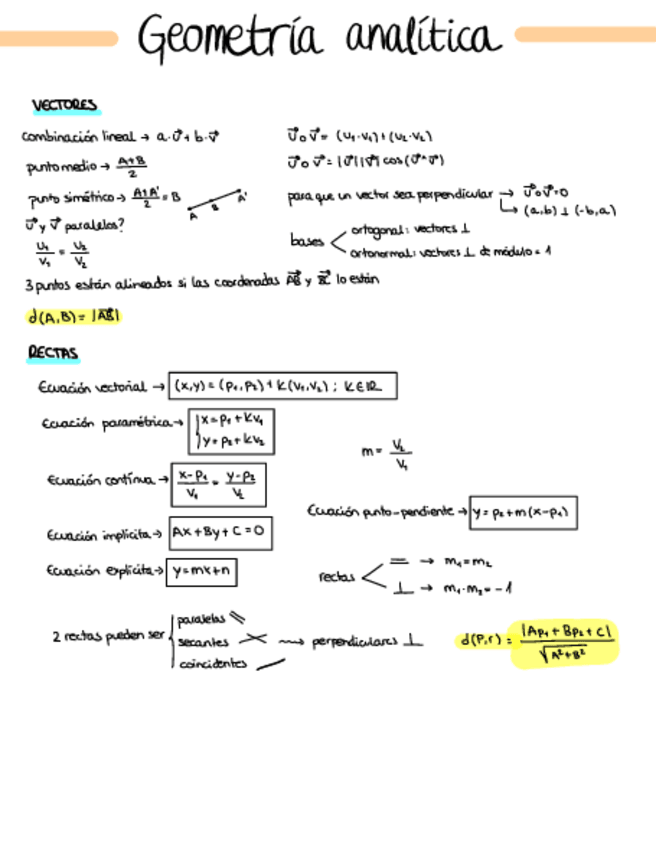 Geometría analítica
VECTORES
combinación lineal → a·u⃗ + b·v⃗
punto medio → (A+B)/2
punto simétrico → (A+A')/2 = B
A B A'
u⃗ y v⃗ paralelos?
u₁/v₁ = u₂/v₂
u⃗ o v⃗ = (u₁·v₁)+(u₂·v₂)
u⃗ o v⃗ = |u⃗||v⃗| cos(u⃗^v⃗)
para que un vector sea perpendicular → u⃗ o v⃗ = 0
↳ (a,b) ⊥ (-b,a)
bases < ortogonal: vectores ⊥
ortonormal: vectores ⊥ de módulo = 1
3 puntos están alineados si las coordenadas AB⃗ y BC⃗ lo están
d(A,B) = |AB⃗|
RECTAS
Ecuación vectorial → (x,y) = (p₁,p₂) + k(v₁,v₂) ; k∈ℝ
Ecuación paramétrica → { x = p₁ + kv₁
y = p₂ + kv₂
m = v₂/v₁
Ecuación contínua → (x-p₁)/v₁ = (y-p₂)/v₂
Ecuación punto-pendiente → y = p₂ + m(x-p₁)
Ecuación implícita → Ax + By + C = 0
Ecuación explícita → y = mx + n
rectas < = → m₁ = m₂
⊥ → m₁·m₂ = -1
2 rectas pueden ser { paralelas
secantes ⟿ perpendiculares ⊥
coincidentes
d(P,r) = |Ap₁ + Bp₂ + C| / √(A²+B²)